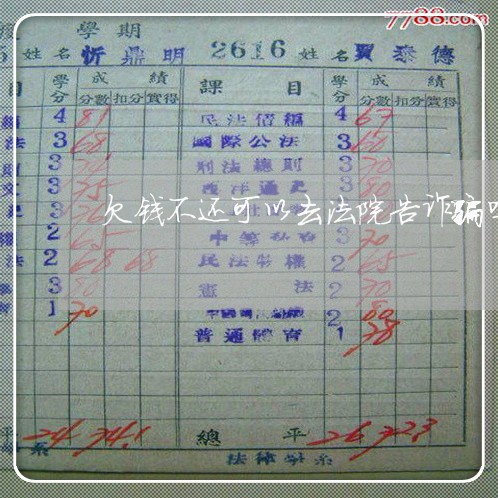 7788.com
學期
姓名 忻鼎明 2616 姓名 賈泰德
目 學分 成績 課目 學分 成績
分數 扣分 實得 分數 扣分 實得
4 81 民法債編 4 67
法 3 68 國際公法 3 60
則 3 刑法總則 3 70
文 3 75 西洋通史 3 80
欠钱不还可以去法院告诈骗吗
2 65 3 70
法 2 68 68 民法物權 2 65
3 80 憲法 2 70
1 70 2 80
普通體育 1 78
平 24 74.1 總平 26 72.3
系 法律學系